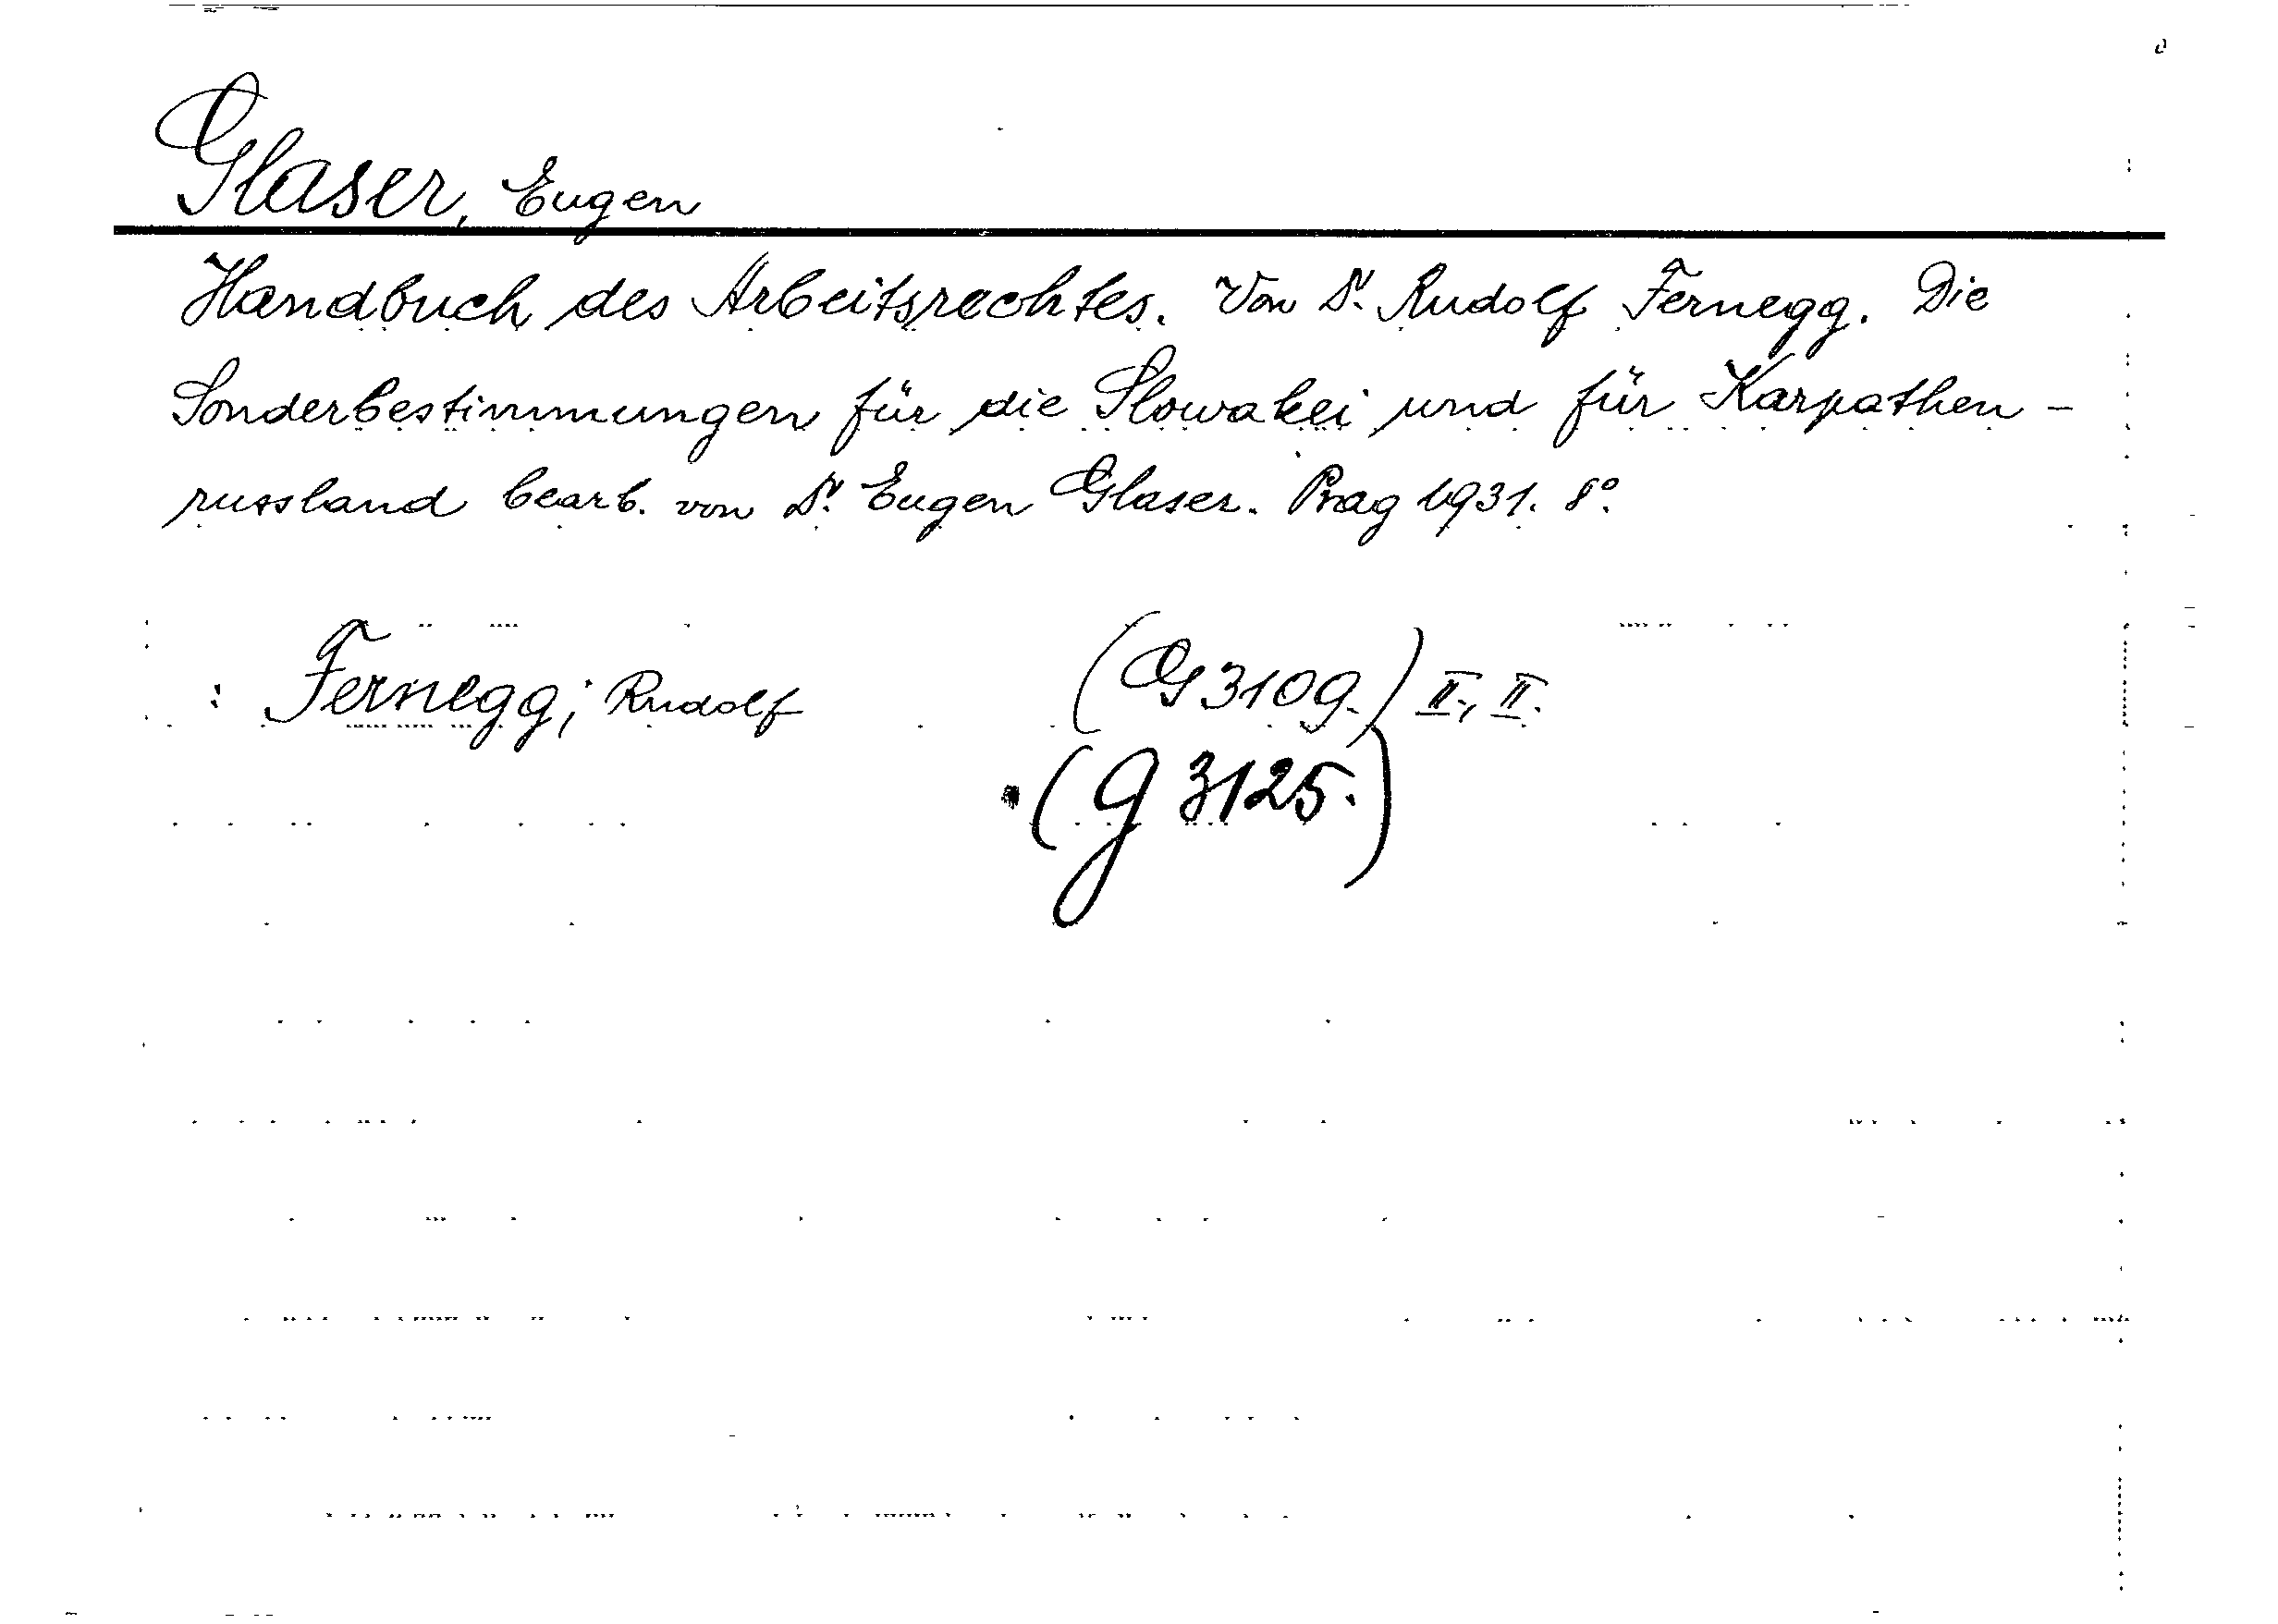 Glaser, Eugen
Handbuch des Arbeitsrechtes. Von Dr. Rudolf Fernegg. Die
Sonderbestimmungen für die Slowakei und für Karpathen-
russland bearb. von Dr. Eugen Glaser. Prag 1931. 8°.
: Fernegg, Rudolf (G 3109.) II., II.
(G 3125.)